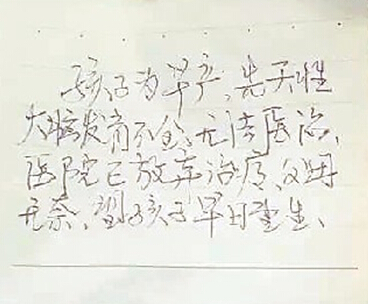 孩子为早产,先天性
大脑发育不全,无法医治,
医院已放弃治疗,父母
无奈,望孩子早日重生、